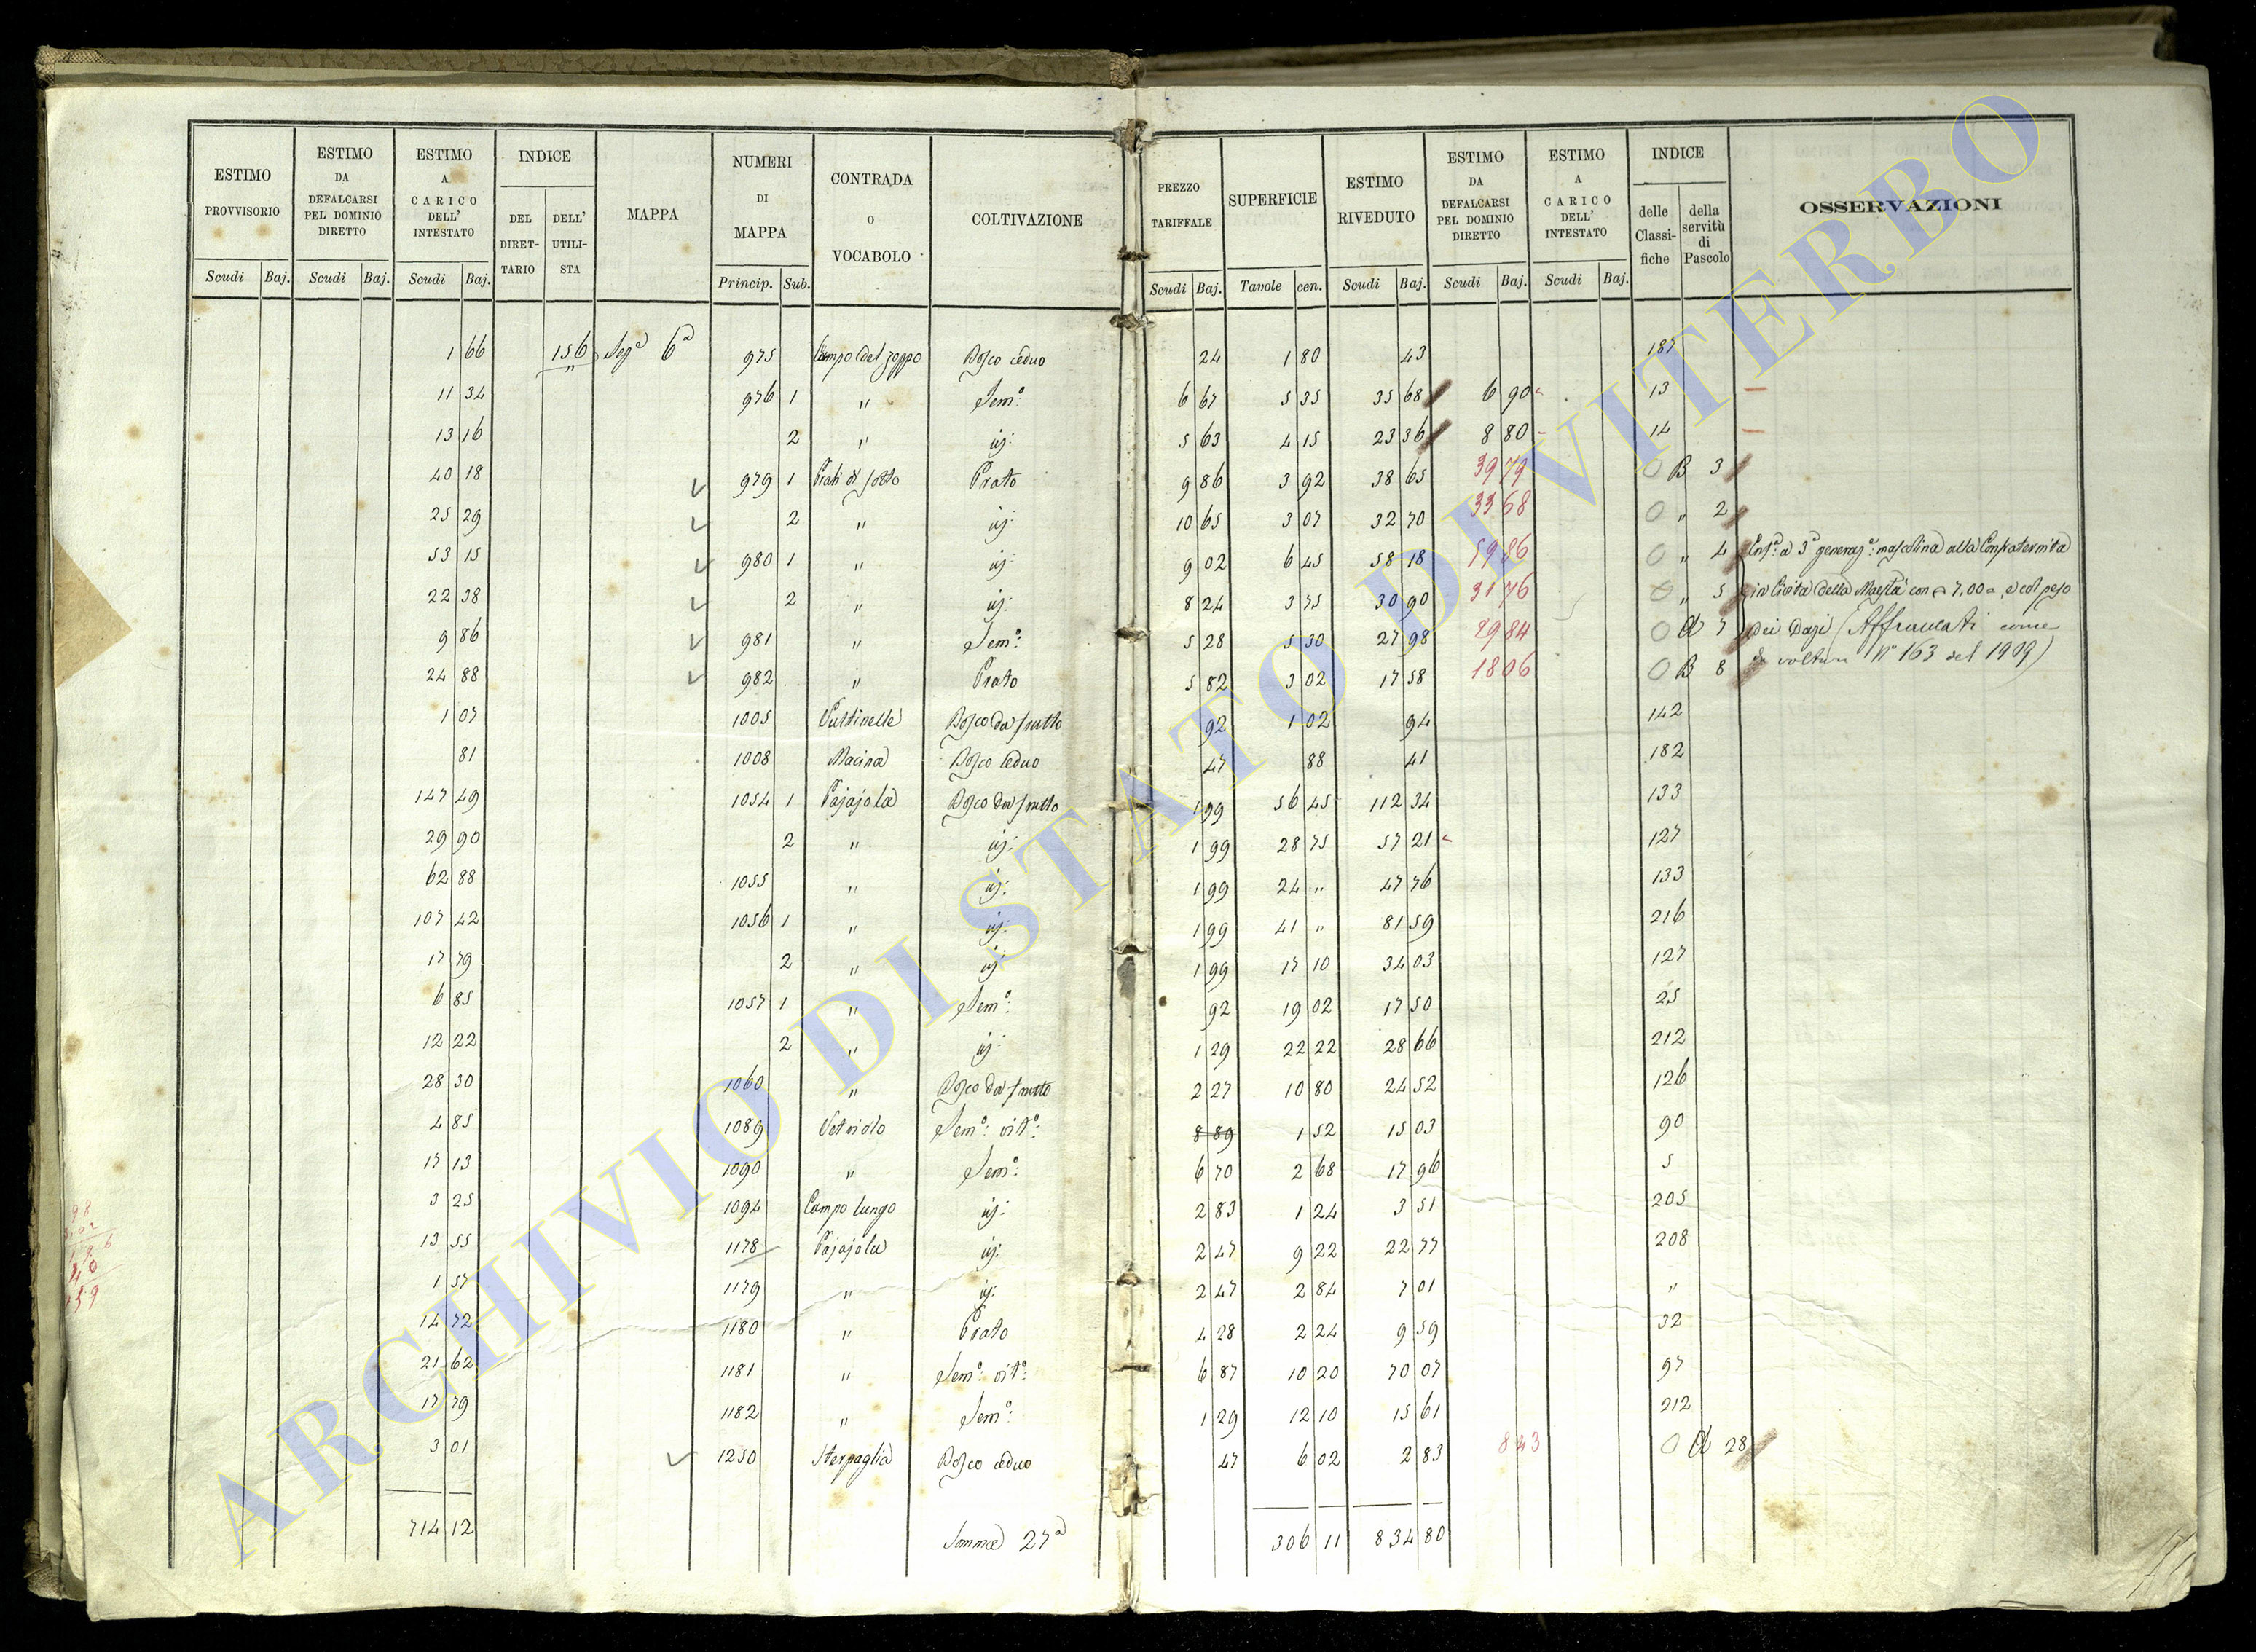 ESTIMO PROVVISORIO Scudi Baj.
ESTIMO DA DEFALCARSI PEL DOMINIO DIRETTO Scudi Baj.
ESTIMO A CARICO DELL' INTESTATO Scudi Baj.
INDICE DEL DIRET-TARIO DELL' UTILI-STA
MAPPA
NUMERI DI MAPPA Princip. Sub.
CONTRADA O VOCABOLO
COLTIVAZIONE
PREZZO TARIFFALE Scudi Baj.
SUPERFICIE Tavole cen.
ESTIMO RIVEDUTO Scudi Baj.
ESTIMO DA DEFALCARSI PEL DOMINIO DIRETTO Scudi Baj.
ESTIMO A CARICO DELL' INTESTATO Scudi Baj.
INDICE delle Classi-fiche della servitù di Pascolo
OSSERVAZIONI
1 66 156 Sez.e 6a 975 Campo del zoppo Bosco ceduo 24 1 80 43 187
11 34 976 1 " Sem.o 6 67 5 35 35 68 6 90 13
13 16 2 " id: 5 63 4 15 23 36 8 80 14
40 18 979 1 Prati di sotto Prato 9 86 3 92 38 65 39 79 0 B 3
25 29 2 " id: 10 65 3 07 32 70 33 68 0 " 2
53 15 980 1 " id: 9 02 6 45 58 18 59 86 0 " 4 Enf.a a 3a generaz.e mascolina alla Confraternita
22 38 2 " id: 8 24 3 75 30 90 31 76 0 " 5 in Civita della Maestà con 7,00 e col peso
9 86 981 " Sem.o 5 28 5 30 27 98 29 84 0 A 7 dei Dazi (Affrancati come
24 88 982 " Prato 5 82 3 02 17 58 18 06 0 B 8 da voltura No 163 del 1909)
1 07 1005 Bosco da frutto 92 1 02 94 142
81 1008 Macina Bosco ceduo 47 88 41 182
147 49 1054 1 Pajajola Bosco da frutto 1 99 56 45 112 34 133
29 90 2 " id: 1 99 28 75 57 21 127
62 88 1055 " id: 1 99 24 " 47 76 133
107 42 1056 1 " id: 1 99 41 " 81 59 216
17 79 2 " id: 1 99 17 10 34 03 127
6 85 1057 1 " Sem.o 92 19 02 17 50 25
12 22 2 " id: 1 29 22 22 28 66 212
28 30 1060 " Bosco da frutto 2 27 10 80 24 52 126
4 85 1089 Vetriolo Sem.o vit.o 8 89 1 52 15 03 90
17 13 1090 " Sem.o 6 70 2 68 17 96 5
3 25 1094 Campo lungo id: 2 83 1 24 3 51 205
13 55 1178 Pajajola id: 2 47 9 22 22 77 208
1 57 1179 " id: 2 47 2 84 7 01 "
14 72 1180 " Prato 4 28 2 24 9 59 32
21 62 1181 " Sem.o vit.o 6 87 10 20 70 07 97
17 79 1182 " Sem.o 1 29 12 10 15 61 212
3 01 1250 Sterpaglia Bosco ceduo 47 6 02 2 83 8 43 0 A 28
714 12 Somma 27a 306 11 834 80
ARCHIVIO DI STATO DI VITERBO